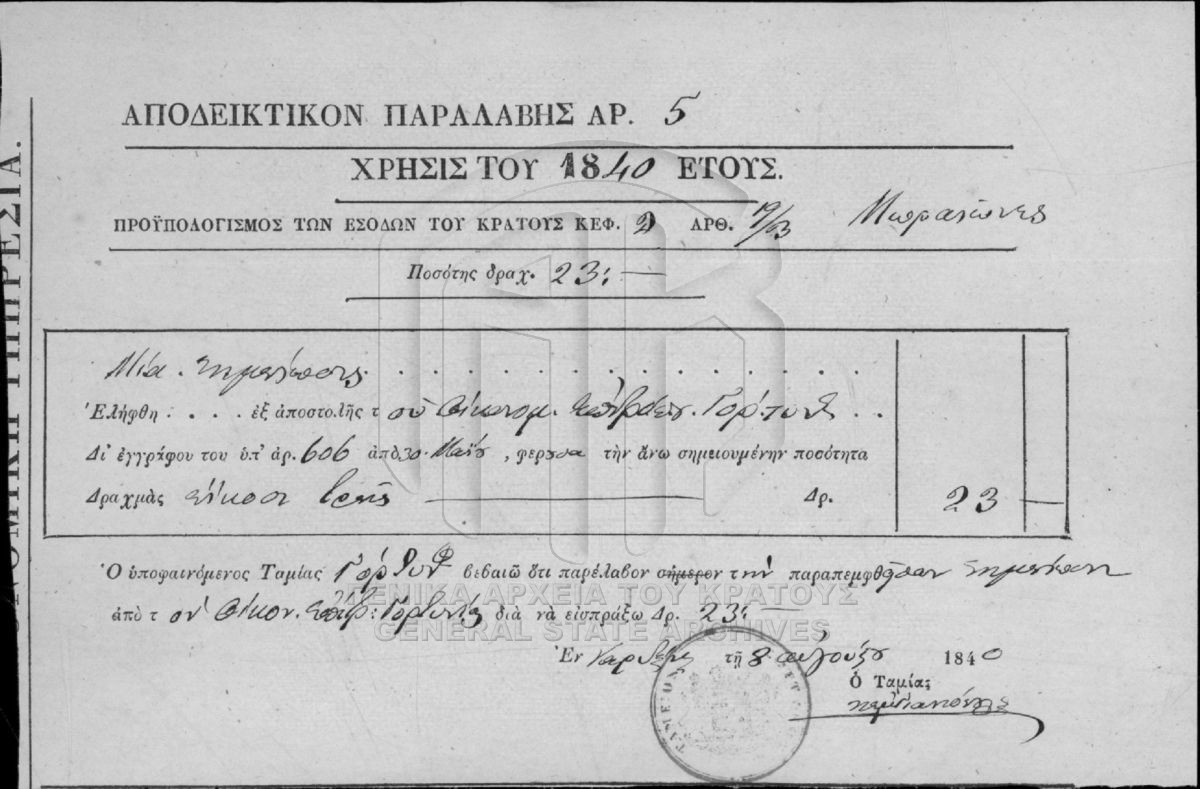 ΑΠΟΔΕΙΚΤΙΚΟΝ ΠΑΡΑΛΑΒΗΣ ΑΡ. 5
ΧΡΗΣΙΣ ΤΟΥ 1840 ΕΤΟΥΣ.
ΠΡΟΫΠΟΛΟΓΙΣΜΟΣ ΤΩΝ ΕΣΟΔΩΝ ΤΟΥ ΚΡΑΤΟΥΣ ΚΕΦ. 2 ΑΡΘ.
Ποσότης δραχ. 23:—
Μία σημείωσις
Ἐλήφθη . . . . ἐξ ἀποστολῆς τοῦ Οἰκονομ. Γόρτυνος . .
Δι' ἐγγράφου του ὑπ' ἀρ. 606 ἀπὸ 30 Μαΐου, φερουσα τὴν ἄνω σημειουμένην ποσότητα
Δραχμὰς εἴκοσι τρεῖς — Δρ. 23 —
Ὁ ὑποφαινόμενος Ταμίας Γόρτυν βεβαιῶ ὅτι παρέλαβον σήμερον τὴν παραπεμφθεῖσαν σημείωσιν
ἀπὸ τον Οἰκον. Γόρτυνος διὰ νὰ εἰσπράξω Δρ. 23:—
ΓΕΝΙΚΑ ΑΡΧΕΙΑ ΤΟΥ ΚΡΑΤΟΥΣ
GENERAL STATE ARCHIVES
Ἐν τῇ 8 αὐγούστου 1840
Ὁ Ταμίας
ΤΑΜΕΙΟΝ